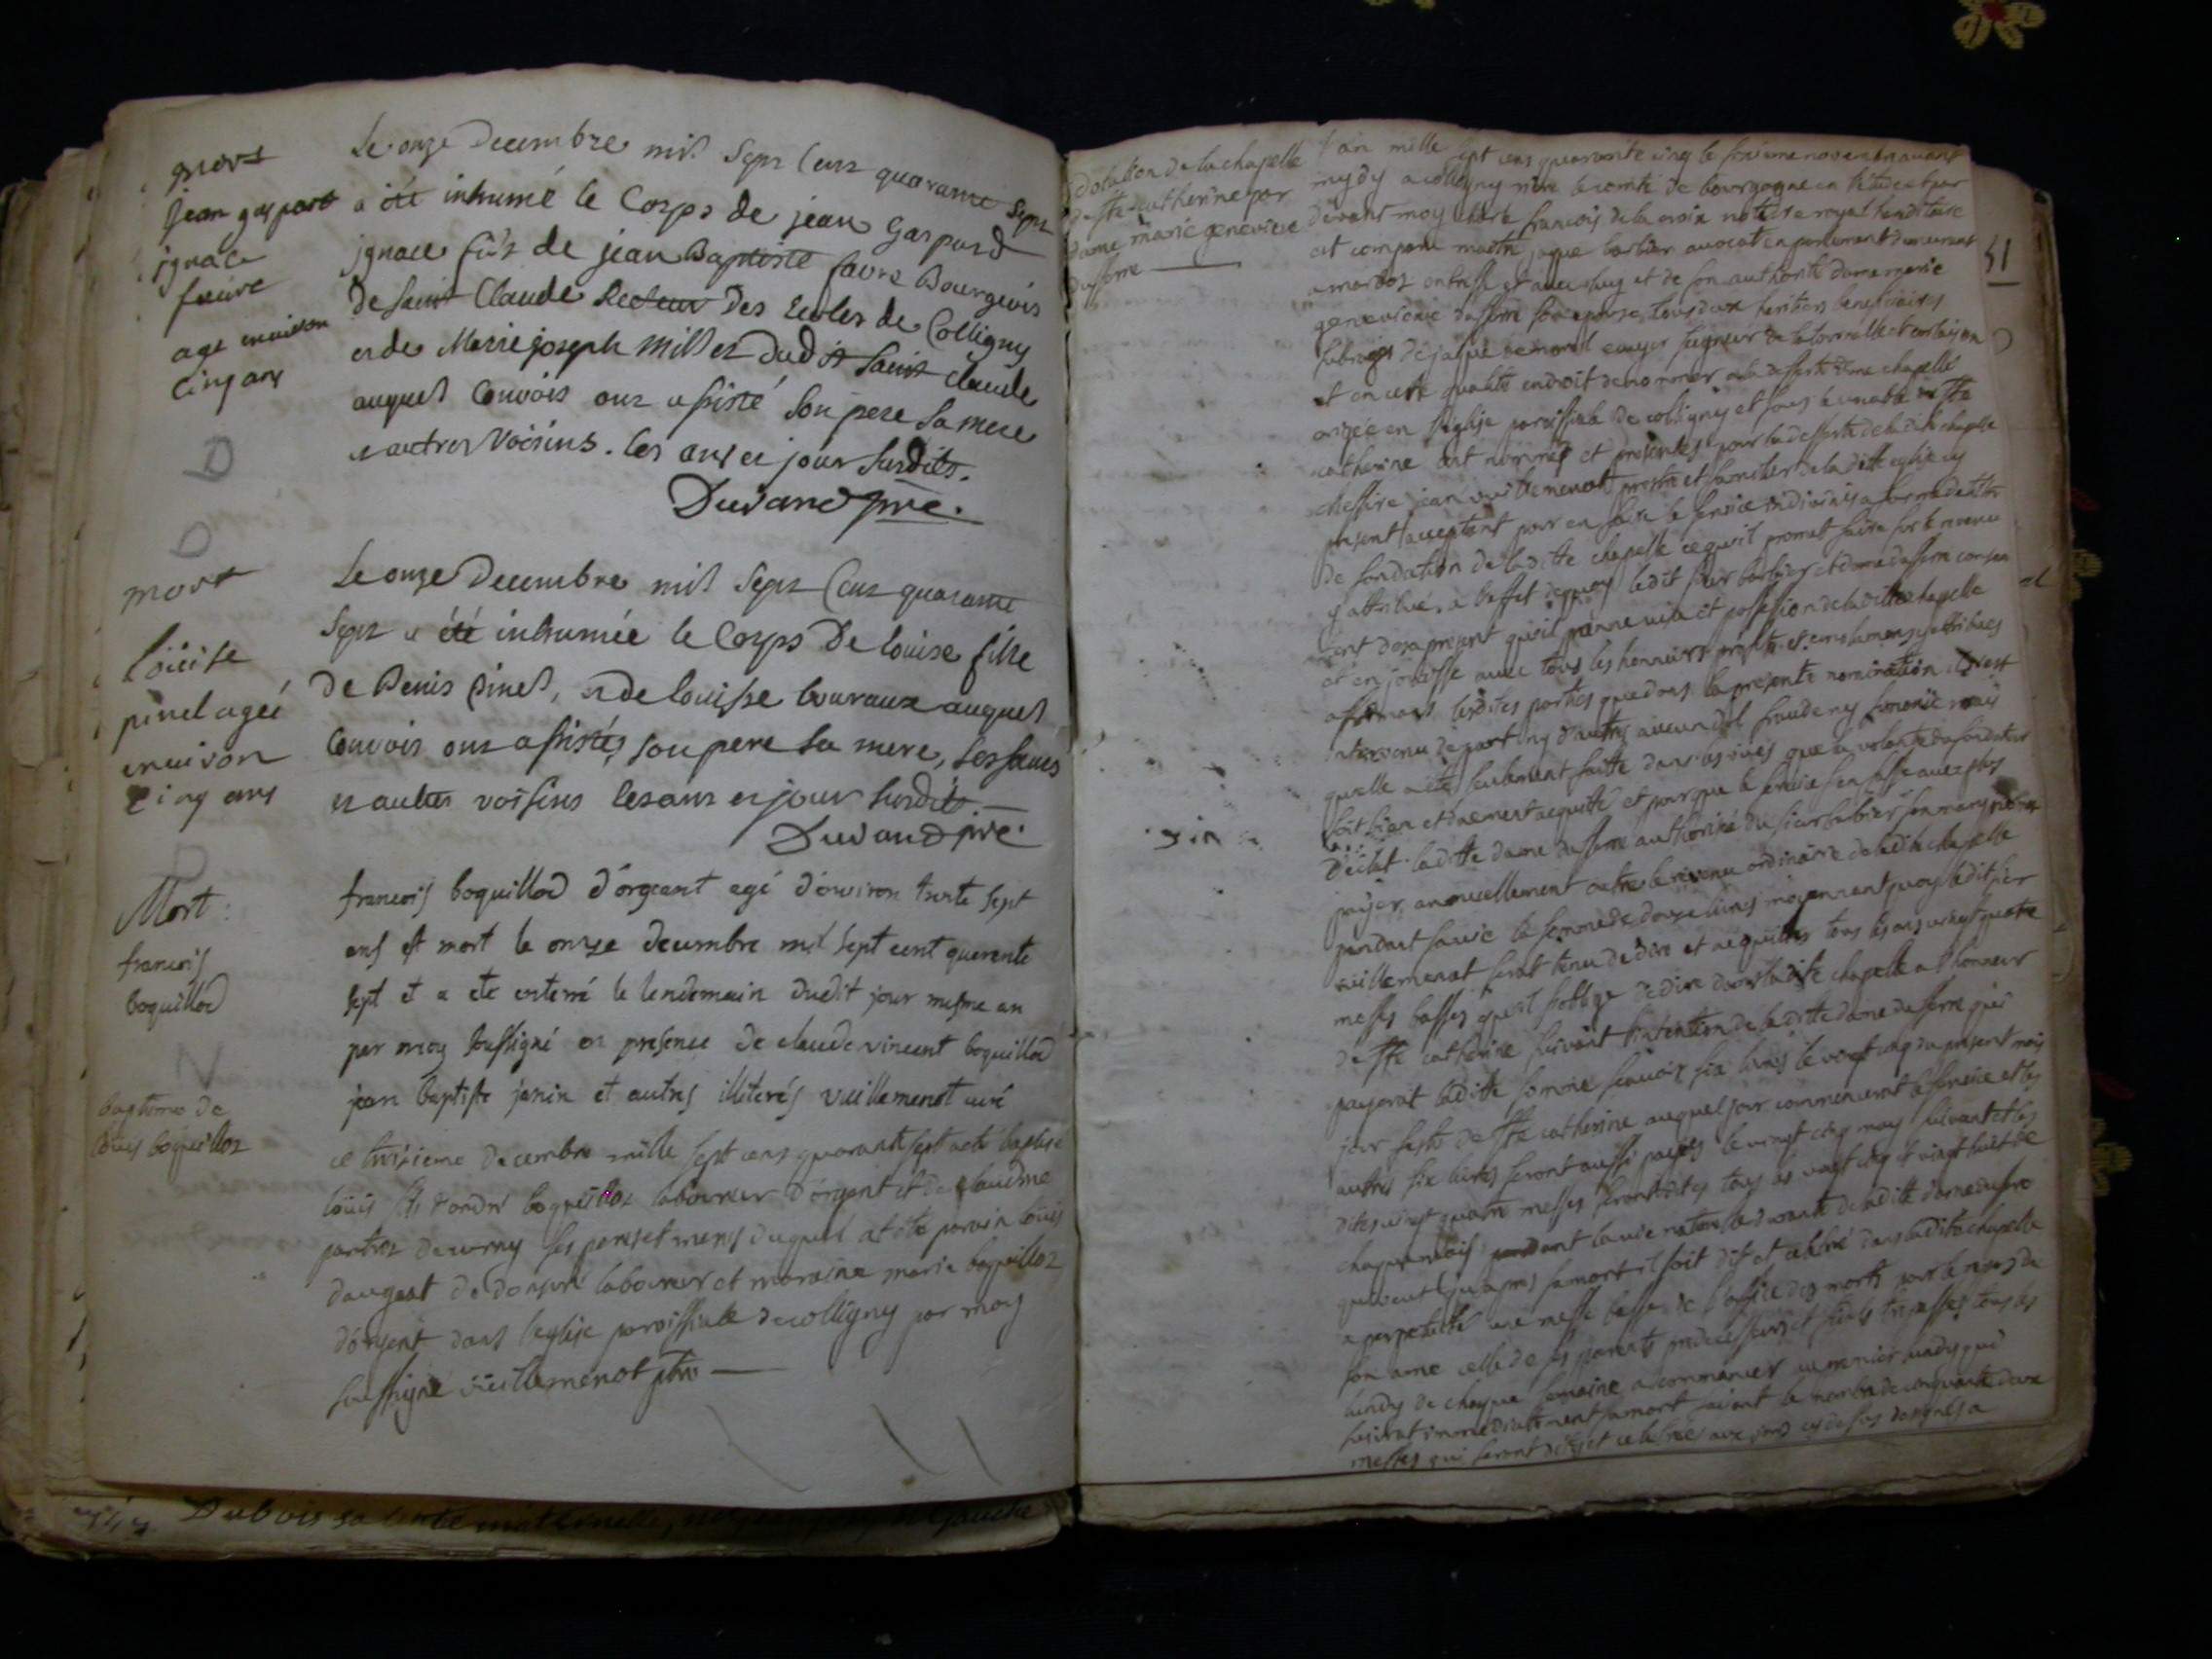 mort
jean gaspart
ignace
favre
age environ
cinq ans
Le onze Decembre mil Sept Cent quarante Sept
a été inhumé le Corps de jean Gaspard
ignace fils de jean Baptiste favre Bourgeois
De Saint Claude Recteur Des Ecoles de Colligny
et de Marie joseph Millet Dudit Saint Claude
auquel Convois ont assisté Son pere Sa mere
et autres Voisins. les ans et jour Susdits.
Durand ptre.
D
D
mort
Loüise
pinel ageé
environ
cinq ans
Le onze Decembre mil Sept Cent quarante
Sept a été inhumée le Corps De louise fille
De Denis Pinel, et de louisse
Convois ont assistés son pere sa mere,
et autres voisins les ans et jour Susdits
Durand ptre.
D
Mort:
francois
boquillod
francois boquillod d'orgeant agé d'environ trente sept
ans est mort le onze decembre mil sept cent quarente
sept et a ete enterré le lendemain dudit jour mesme an
par moy soussigné en presence de claude vincent boquillod
jean baptiste janin et autres illiterés vuillemenot curé
N
baptême de
loüis boquilloz
ce troisieme decembre mille sept cens quarante sept a eté baptisé
loüis fils d'andré boquilloz laboureur d'orgent et de claudine
ses peres et meres duquel at été parain loüis
laboureur et maraine marie boquilloz
d'orgent dans l'eglise paroissiale de colligny par moy
soussigné vuillemenot ptre
Dubois sa tante maternelle,
51
Dotation de la chapelle
de Ste catherine par
dame marie genevieve
dusserre
l'an mille sept cens quarante cinq le seizieme novembre avant
mydy a colligny viere le comté de bourgogne en l'étude et par
devant moy charle francois de la croix notaire royal hereditaire
at comparu maitre jaque barbier avocat en parlement demeurant
et avec luy et de son authorité dame marie
genevieve dusserre son epouse, tous deux heritiers beneficiaires
ecuyer seigneur de la tournelle
et en cette qualité en droit de nommer a la desserte d'une chapelle
erigée en l'église paroissiale de colligny et sous le vocable de Ste
catherine ont nommés et presentés pour la desserte de la dite chapelle
Messire jean vuillemenot prestre et familier de la ditte eglise cy
present acceptant pour en faire le service
de fondation de la ditte chapelle ce qu'il promet faire sur le revenu
y attribué, a l'effet dequoy ledit sieur barbier et dame dusserre
des a present qu'il prenne mise et possession de la ditte chapelle
et en joüisse avec tous les honneurs profits et emolumens y attribués
affirmant lesdites parties que dans la presente nomination il n'est
intervenu de part ny d'autres aucun dol fraude ny simonie mais
qu'elle a eté seulement faitte dans les vües que la volonté du fondateur
soit bien et duement acquitté et pour que le service s'en fasse avec plus
d'eclat ladite dame dusserre authorisé du sieur barbier son mary
payer annuellement outre le revenu ordinaire de ladite chapelle
pendant sa vie la somme de douze livres moyennant quoy ledit sieur
vuillemenot serat tenu de dire et acquitter tous les ans vingt quatre
messes basses qu'il s'oblige de dire dans ladite chapelle a l'honneur
de Ste catherine suivant l'intention de la ditte dame dusserre qui
payerat laditte somme scavoir six livres le vingt cinq du present mois
jour feste de Ste catherine auquel jour commencerat le service et les
autres six livres seront aussi payés le vingt cinq may suivant et les
dites vingt quatre messes seront dites tous les vingt cinq et vingt huit de
chaque mois pendant la vie naturelle durante de ladite dame dusserre
qui veut qu'apres sa mort il soit dit et celebré dans ladite chapelle
a perpetuité une messe basse de l'office des morts pour le repos de
son ame celle de ses parents predecesseurs et fidels trepassés tous les
lundy de chaque semaine a commencer au premier lundy qui
suivrat immediatement sa mort faisant le nombre de cinquante deux
messes qui seront dites et celebrées aux jours cy dessus designés a